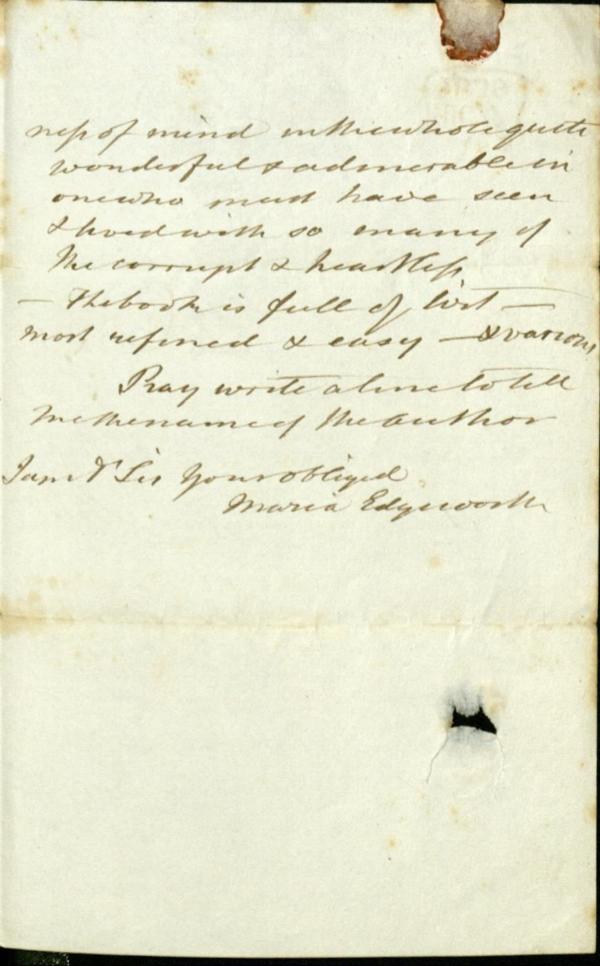 ness of mind in the whole quite
wonderful & admirable in
one who must have seen
& lived with so many of
the corrupt & heartless
— The book is full of wit —
most refined & easy — & various
Pray write a line to tell
me the name of the author
I am Dr Sir your obliged
Maria Edgeworth